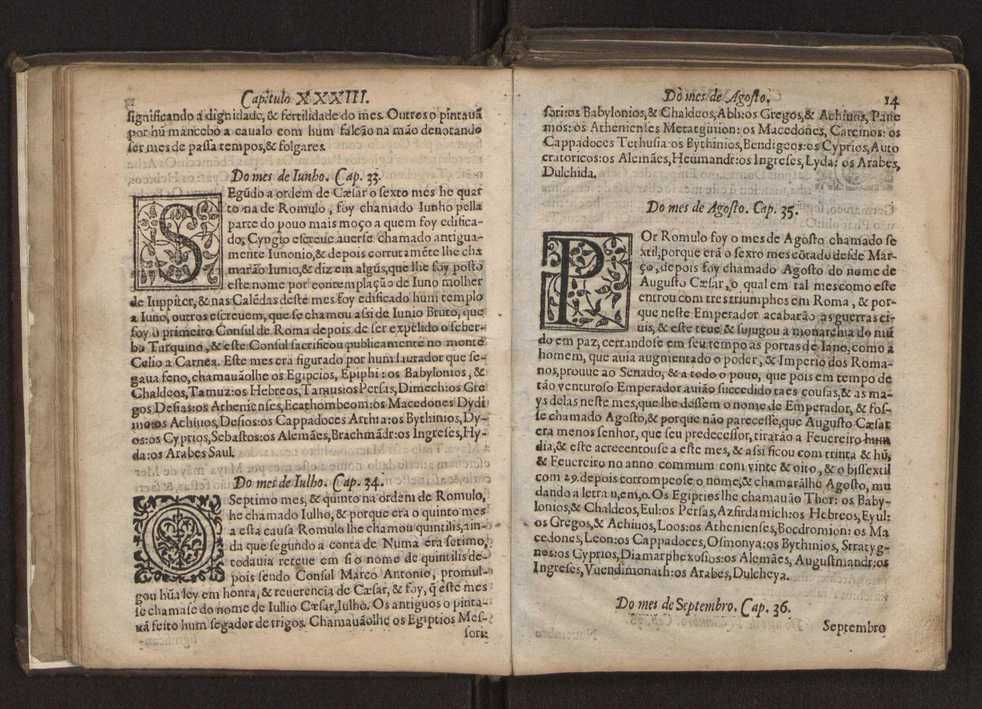 Capitulo XXXIII.
significando a dignidade, & fertilidade do mes. Outros o pintauã
por hũ mancebo a caualo com hum falcão na mão denotando
ser mes de passa tempos, & folgares.
Do mes de Iunho. Cap. 33.
SEgũdo a ordem de Cæsar o sexto mes he quar
to na de Romulo, foy chamado Iunho pella
parte do pouo mais moço a quem foy edifica-
do; Cyngio escreue auerse chamado antigua-
mente Iunonio, & depois corrutamẽte lhe cha
marão Iunio, & dizem algũs, que lhe foy posto
este nome por contemplação de Iuno molher
de Iuppiter, & nas Calẽdas deste mes foy edificado hum templo
a Iuno, outros escreuem, que se chamou assi de Iunio Bruto, que
foy o primeiro Consul de Roma depois de ser expelido o seber-
bo Tarquino, & este Consul sacrificou publicamente no monte
Celio a Carnea. Este mes era figurado por hum laurador que se-
gaua feno, chamauãolhe os Egipcios, Epiphi: os Babylonios, &
Chaldeos, Tamuz: os Hebreos, Tamusios Persas, Dimechios Gre
gos Desias: os Athenienses, Ecathombeom: os Macedones Dydi
mo: os Achiuos, Desios: os Cappadoces Artha: os Bythinios, Dy-
os: os Cyprios, Sebastos: os Alemães, Brachmãdr: os Ingreses, Hy-
da: os Arabes Saul.
Do mes de Iulho. Cap. 34.
O Septimo mes, & quinto na ordem de Romulo,
he chamado Iulho, & porque era o quinto mes
a esta causa Romulo lhe chamou quintilis, ain-
da que segundo a conta de Numa era setimo,
todauia reteue em si o nome de quintilis de-
pois sendo Consul Marco Antonio, promul-
gou hũa ley em honra, & reuerencia de Cæsar, & foy, q̃ este mes
se chamase do nome de Iullio Cæsar, Iulho. Os antiguos o pinta-
uã feito hum segador de trigos. Chamauãolhe os Egiptios Mes-
sori:
Do mes de Agosto. 14
sori: os Babylonios, & Chaldeos, Abh: os Gregos, & Achiuos, Pane
mos: os Athenienses Metatginion: os Macedones, Carcinos: os
Cappadoces Tethusia os Bythinios, Bendigeos: os Cyprios, Auto
cratoricos: os Alemães, Heumandr: os Ingreses, Lyda: os Arabes,
Dulchida.
Do mes de Agosto. Cap. 35.
POr Romulo foy o mes de Agosto chamado se
xtil, porque erá o sexto mes cõtado desde Mar-
ço, depois foy chamado Agosto do nome de
Augusto Cæsar, o qual em tal mes como este
entrou com tres triumphos em Roma, & por-
que neste Emperador acabarão as guerras ci-
uis, & este teue & sujugou a monarchia do mũ
do em paz, cerrandose em seu tempo as portas de Iano, como a
homem, que auia augmentado o poder, & Imperio dos Roma-
nos, prouue ao Senado, & a todo o pouo, que pois em tempo de
tão venturoso Emperador auião succedido taes cousas, & as ma-
ys delas neste mes, que lhe dessem o nome de Emperador, & fos-
se chamado Agosto, & porque não parecesse, que Augusto Cæsar
era menos senhor, que seu predecessor, tirarão a Feuereiro hum
dia, & este acrecentouse a este mes, & assi ficou com trinta & hũ,
& Feuereiro no anno commum com vinte & oito, & o bissextil
com 29. depois corrompeose o nome, & chamarãlhe Agosto, mu
dando a letra u, em, o. Os Egiptios lhe chamauão Thor: os Baby-
lonios, & Chaldeos, Eul: os Persas, Azfirdamich: os Hebreos, Eyul:
os Gregos, & Achiuos, Loos: os Athenienses, Bocdromion: os Ma
cedones, Leon: os Cappadoces, Osmonya: os Bythinios, Stratyg-
nos: os Cyprios, Diamarphexosios: os Alemães, Augustmandr: os
Ingreses, Vuendimonath: os Arabes, Dulcheya.
Do mes de Septembro. Cap. 36.
Septembro